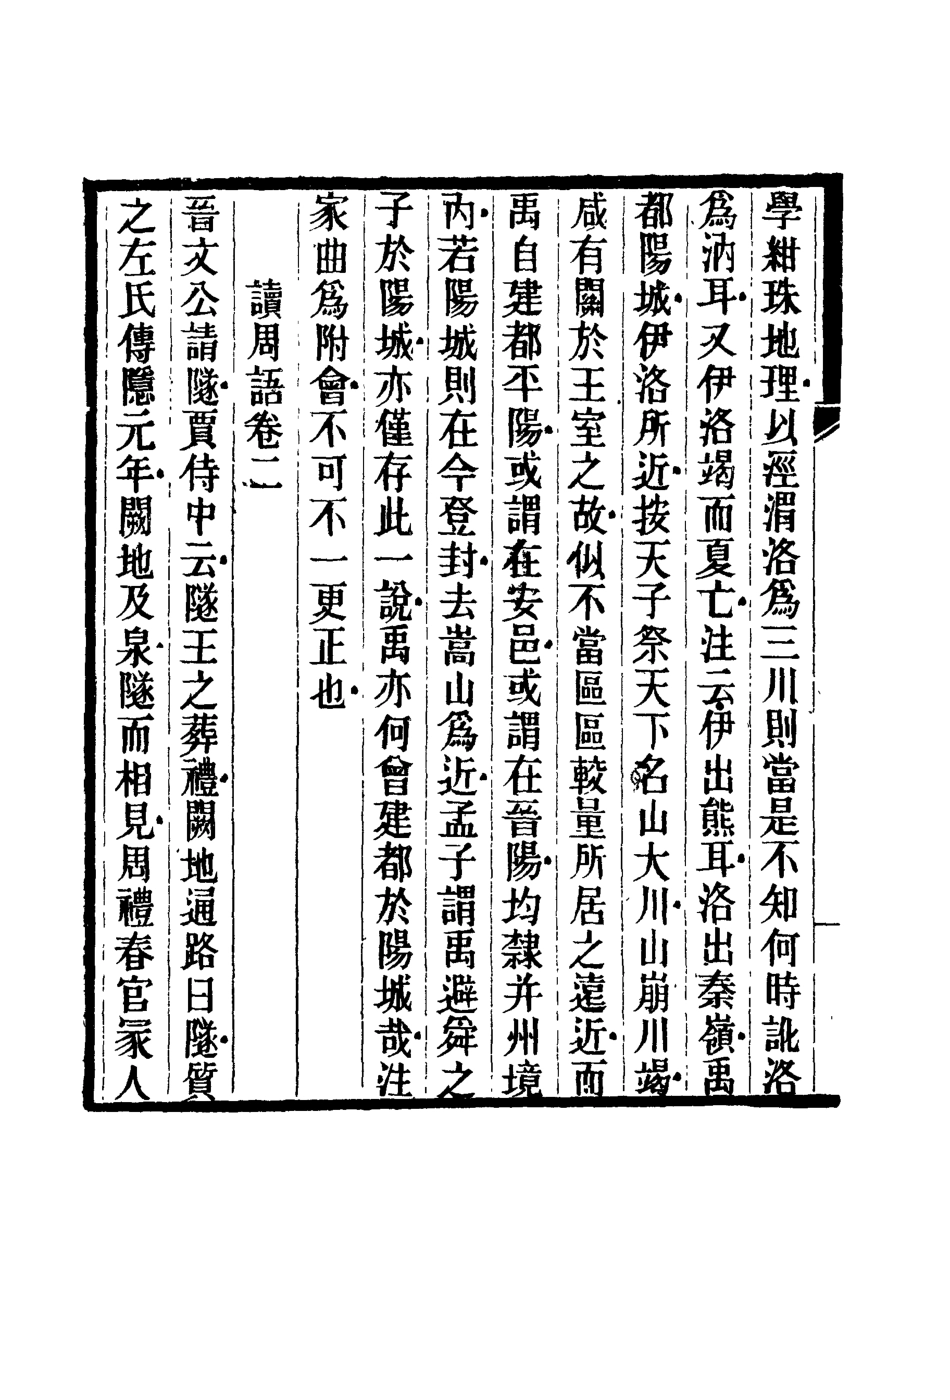 學紺珠地理以涇渭洛爲三川則當是不知何時訛洛
爲汭耳又伊洛竭而夏亡注云伊出熊耳洛出秦嶺禹
都陽城伊洛所近按天子祭天下名山大川山崩川竭
咸有關於王室之故似不當區區較量所居之遠近而
禹自建都平陽或謂在安邑或謂在晉陽均隸并州境
內若陽城則在今登封去嵩山爲近孟子謂禹避舜之
子於陽城亦僅存此一說禹亦何曾建都於陽城哉注
家曲爲附會不可不一更正也
讀周語卷二
晉文公請隧賈侍中云隧王之葬禮闕地通路曰隧質
之左氏傳隱元年闕地及泉隧而相見周禮春官冡人